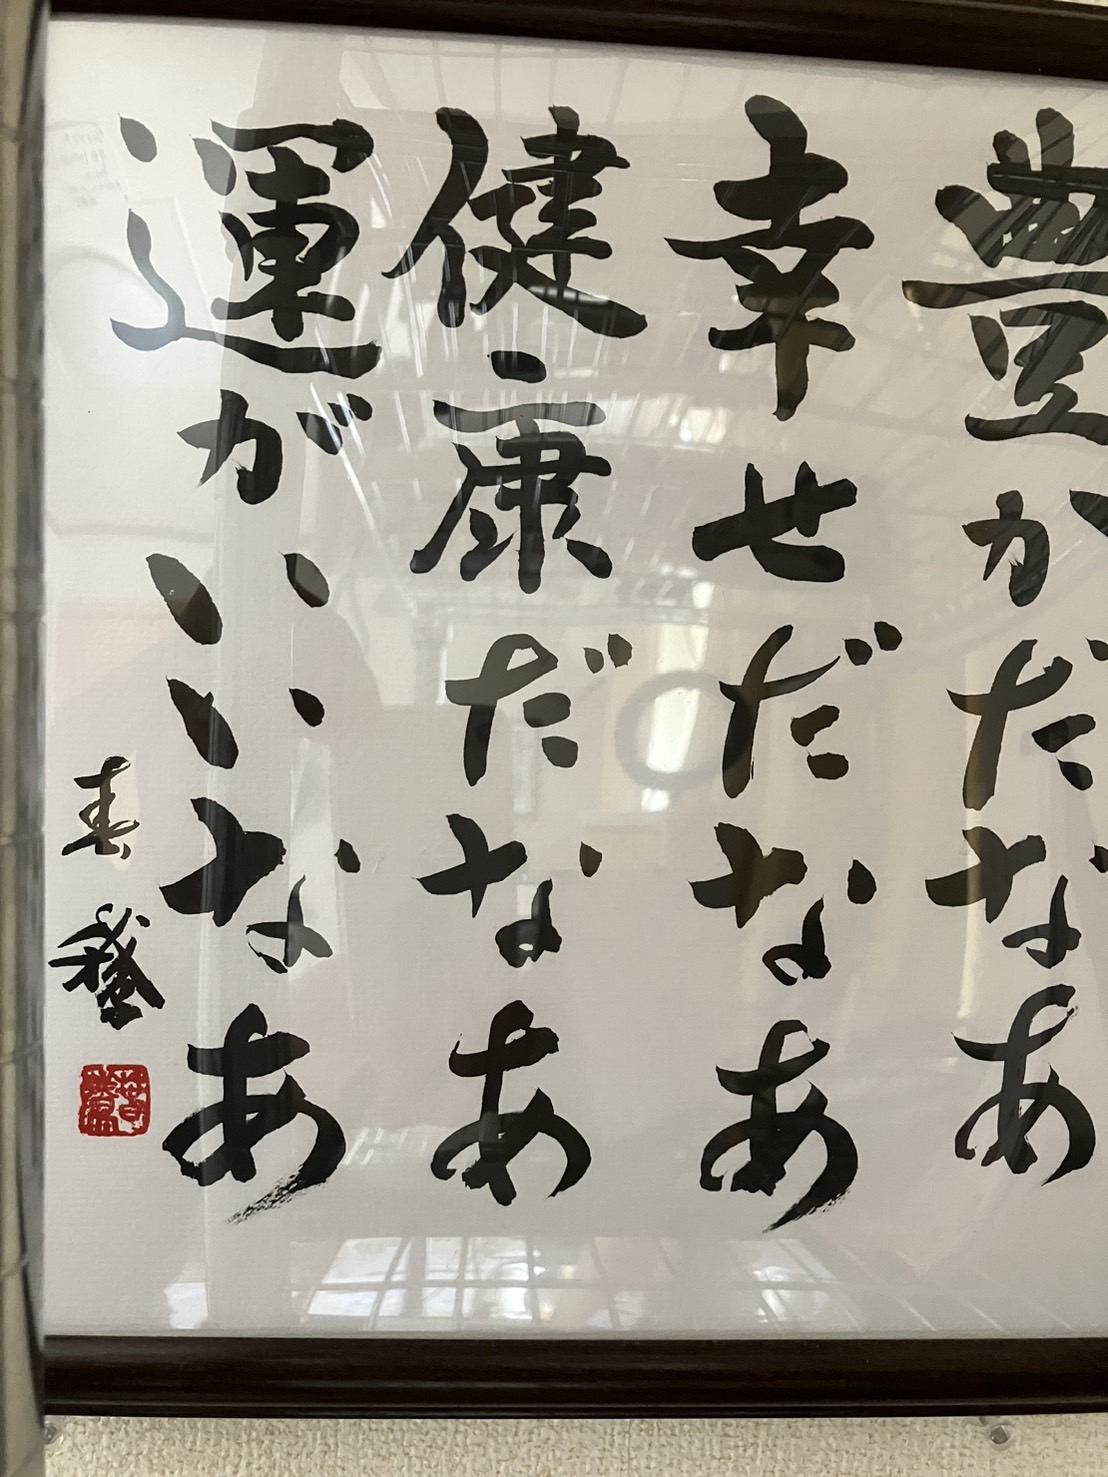 豊かだなあ
幸せだなあ
健康だなあ
運がいいなあ